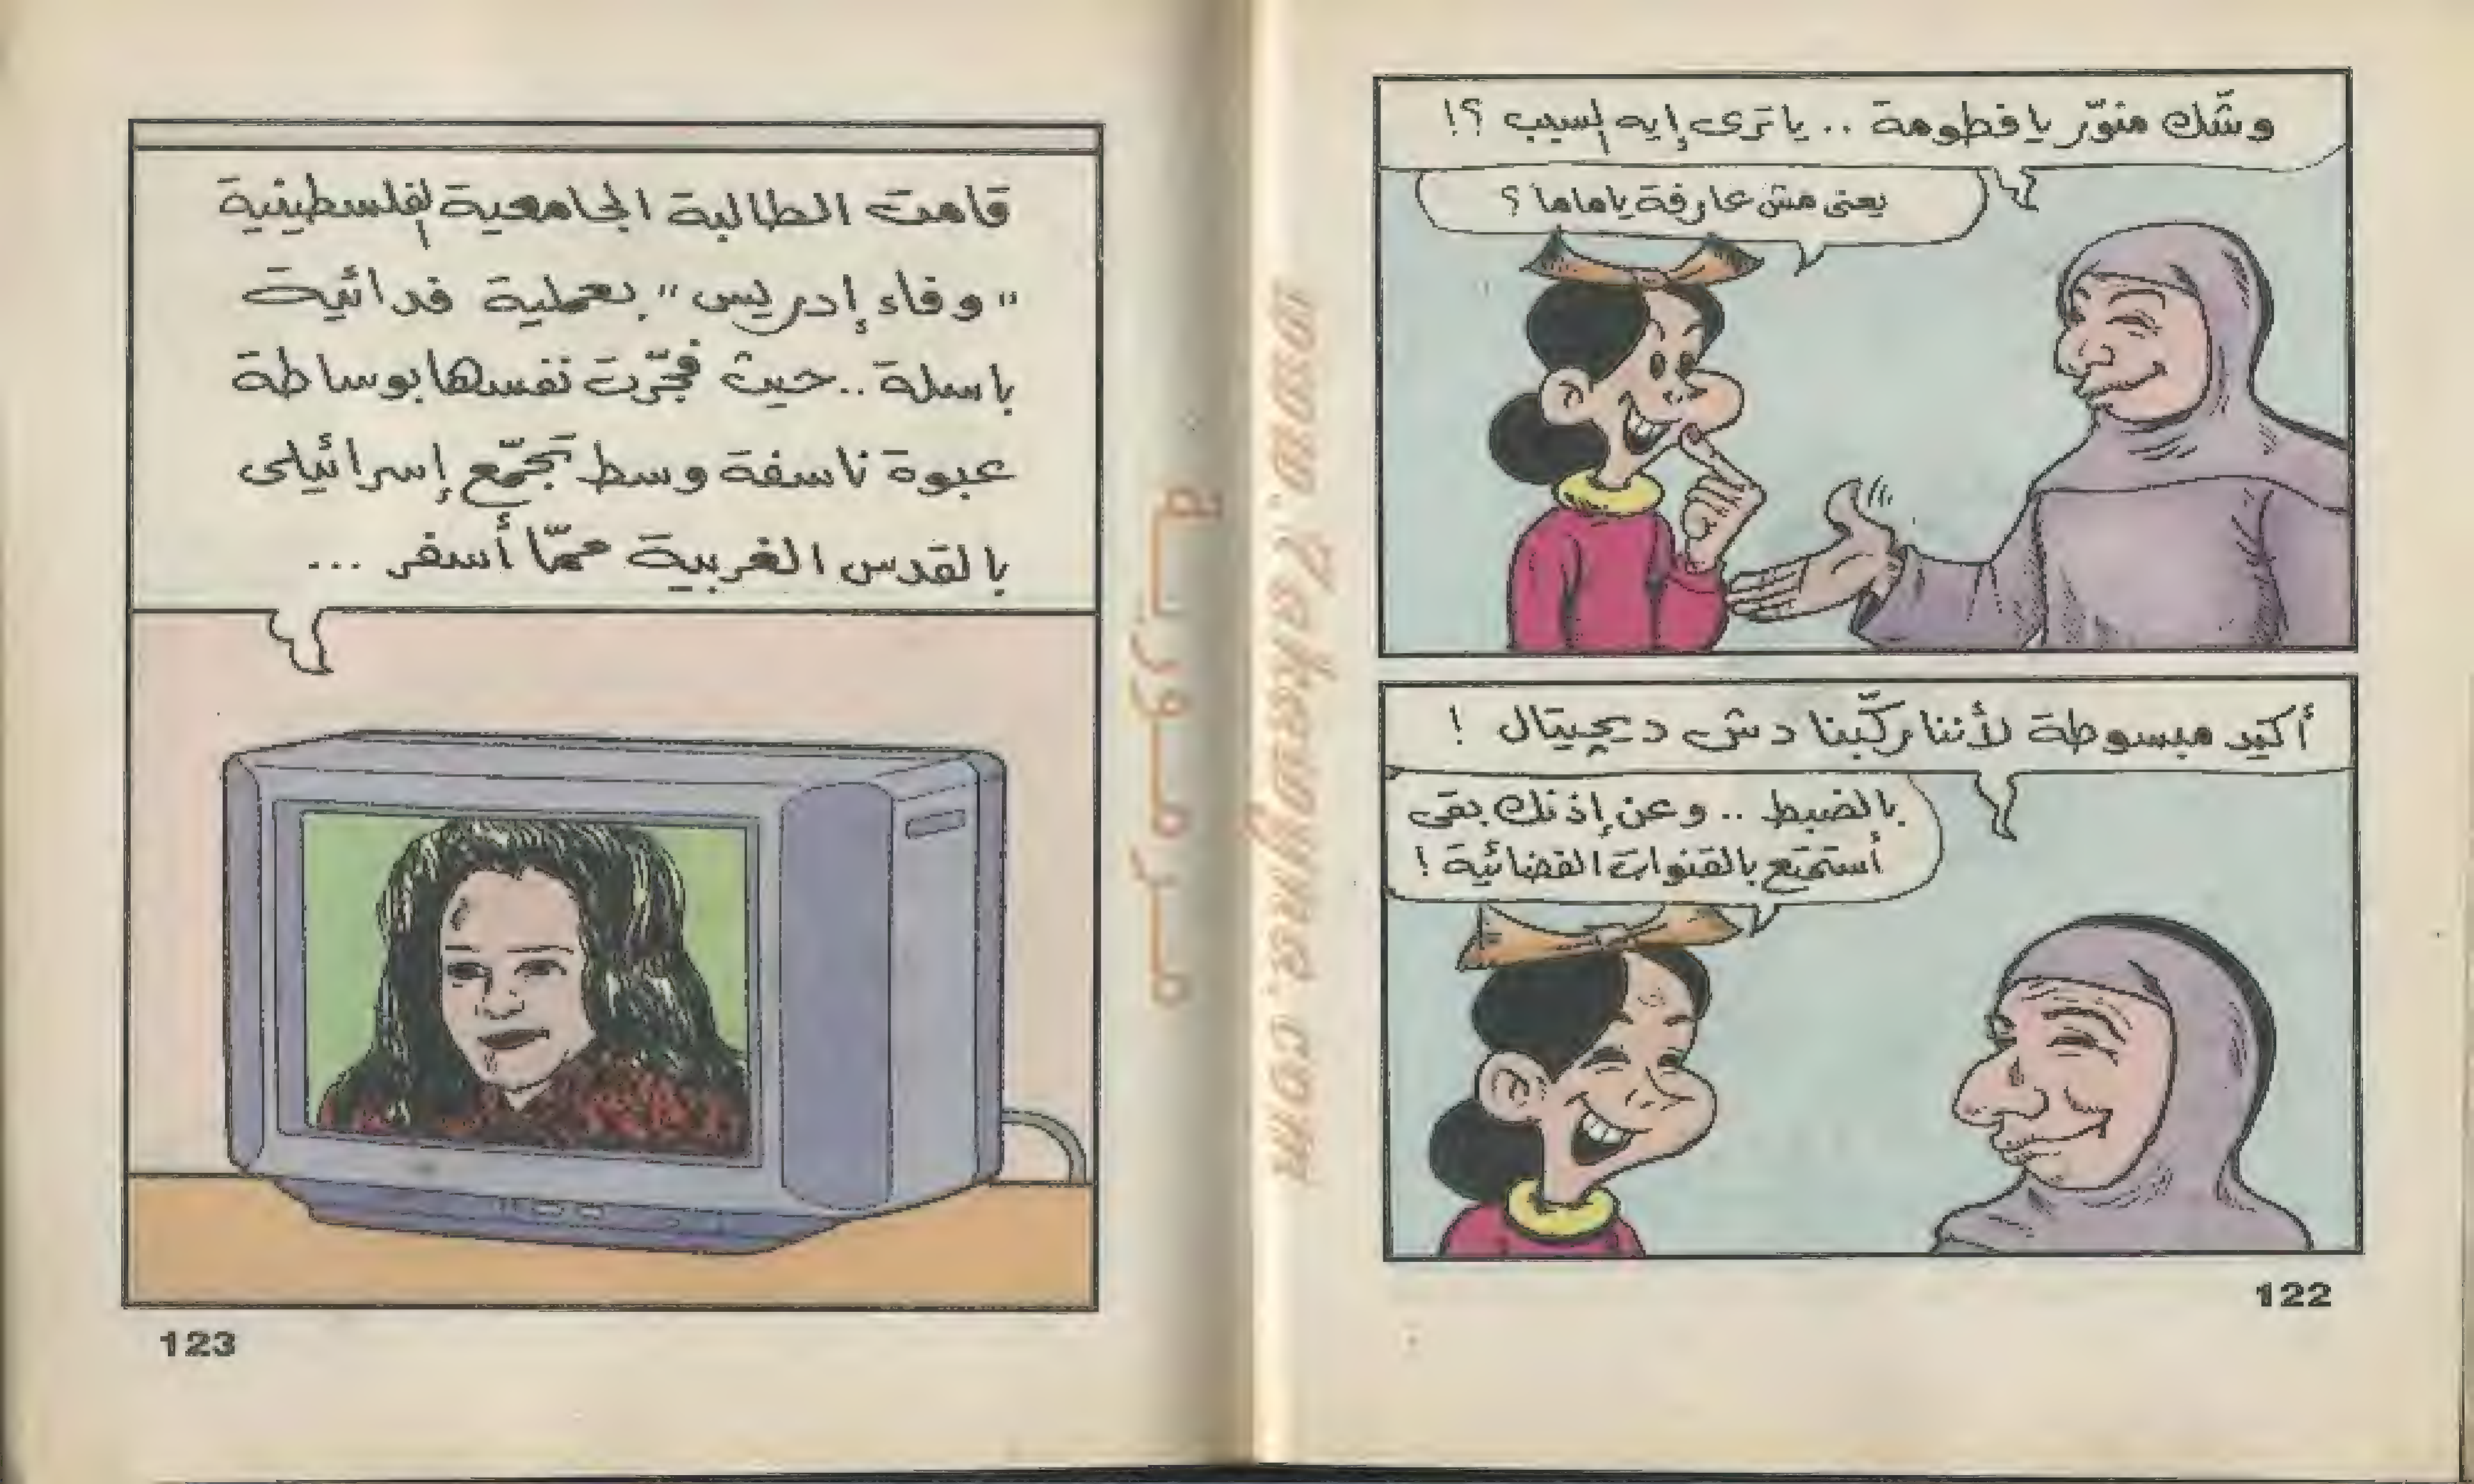 وشّك منوّر يا فطومة .. يا ترى إيه السبب ؟!
يعنى مش عارفة يا ماما ؟
أكيد مبسوطة لأننا ركّبنا دش ديچيتال !
بالضبط .. وعن إذنك بقى
أستمتع بالقنوات الفضائية !
122
قامت الطالبة الجامعية الفلسطينية
"وفاء إدريس" بعملية فدائية
باسلة .. حيث فجّرت نفسها بوساطة
عبوة ناسفة وسط تجمّع إسرائيلى
بالقدس الغربية ممّا أسفر ...
123